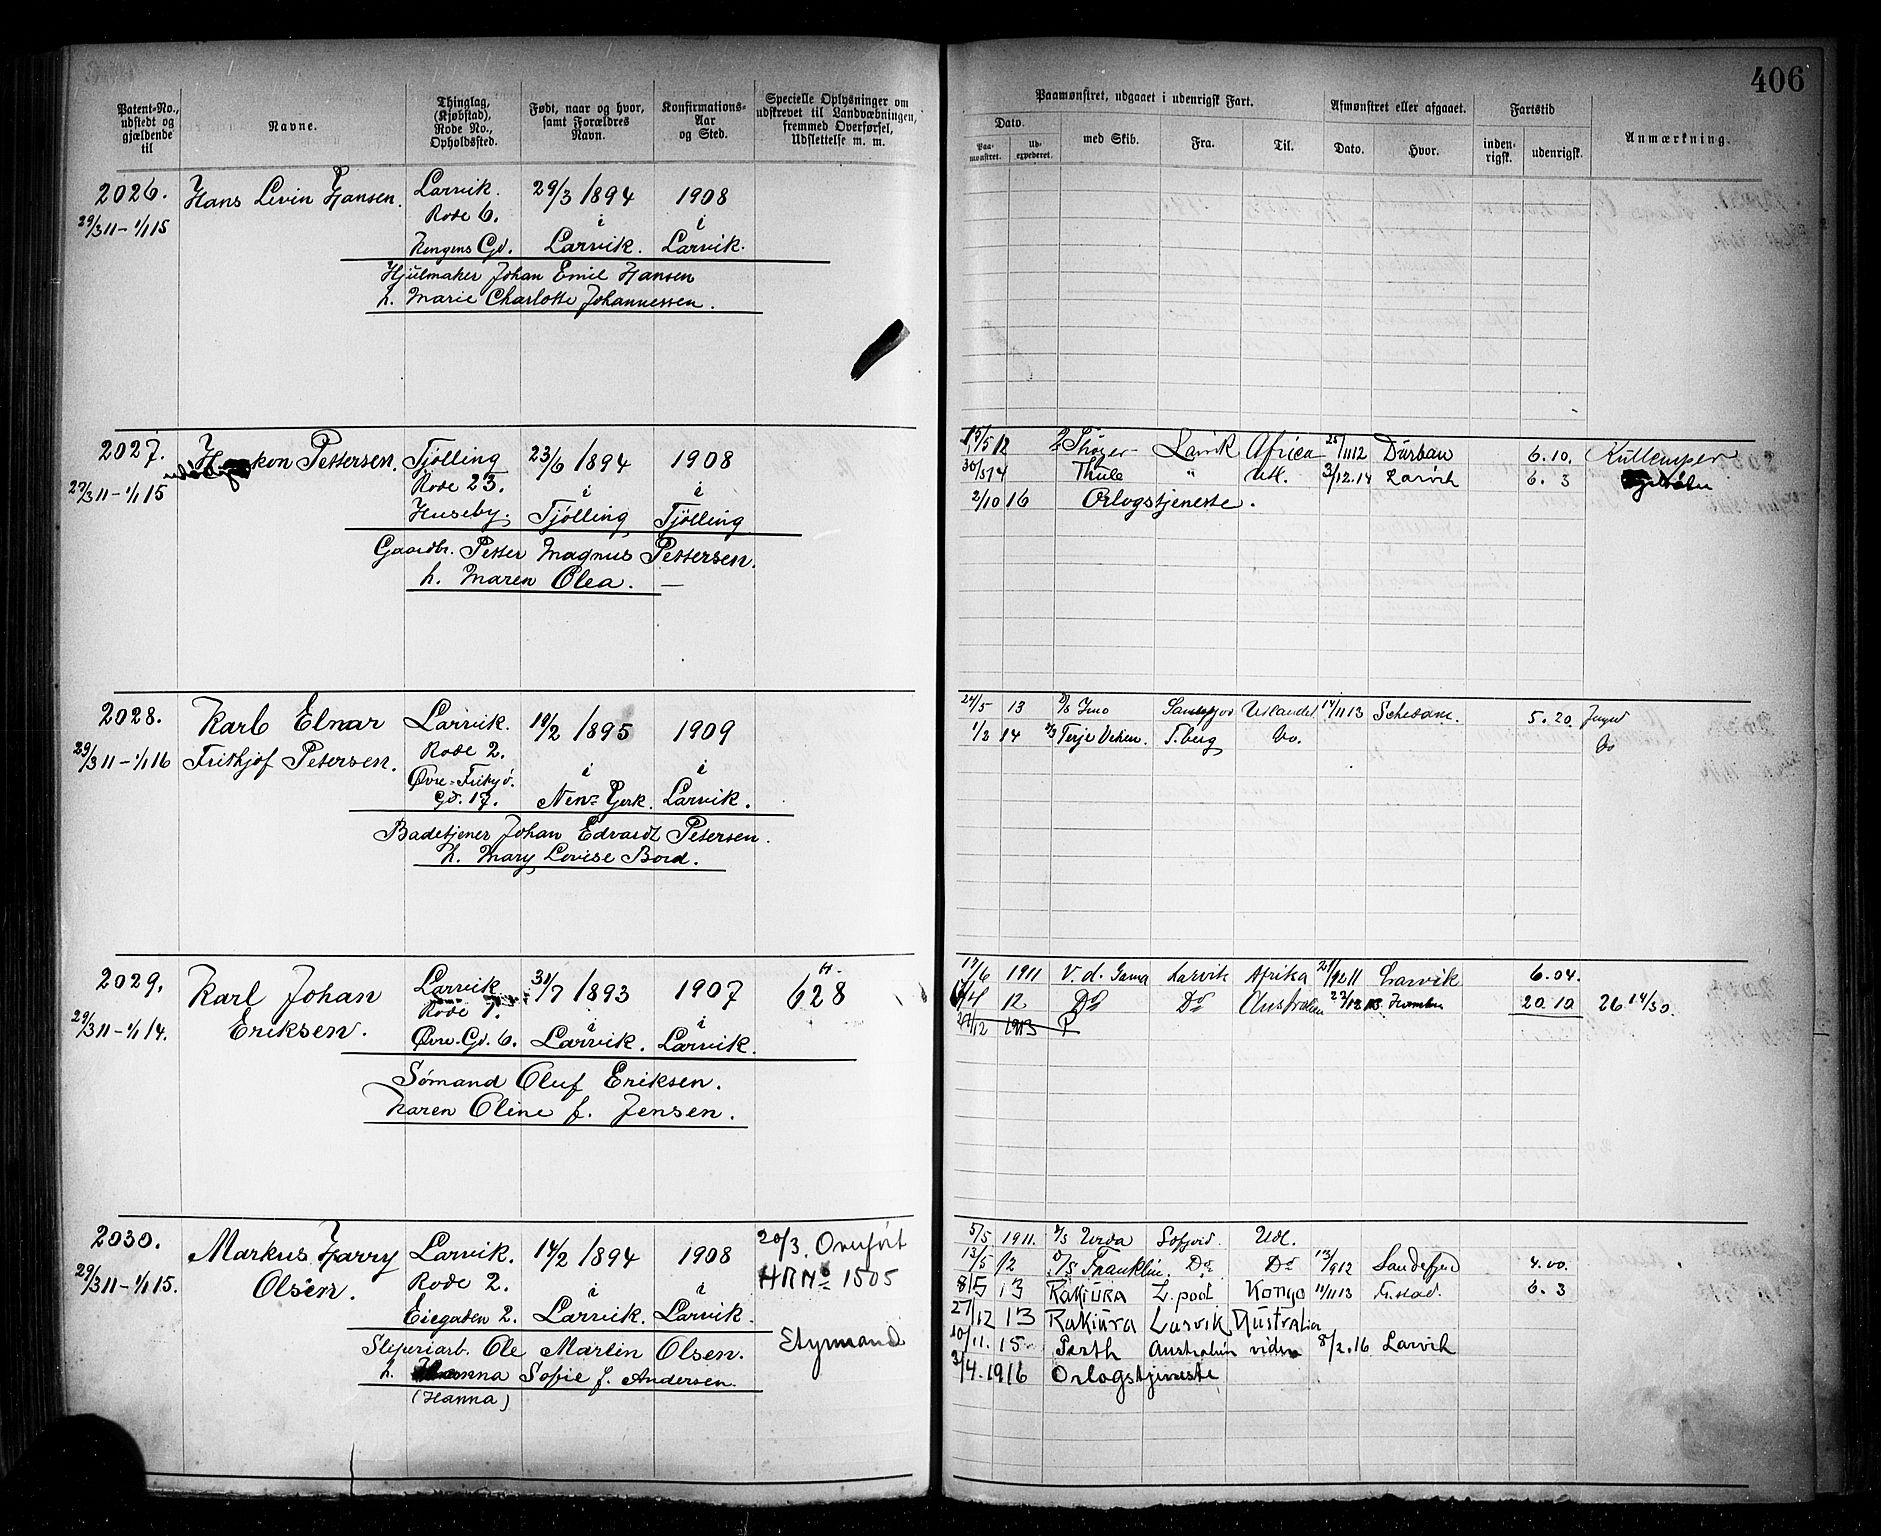 406
Patent-No., udstedt og gjældende til
Navne.
Thinglag, (Kjøbstad), Rode No., Opholdssted.
Født, naar og hvor, samt Forældres Navn.
Konfirmations-Aar og Sted.
Specielle Oplysninger om udskrevet til Landvæbningen, fremmed Overførsel, Udslettelse m. m.
Paamønstret, udgaaet i udenrigsk Fart.
Dato.
Paa-mønstret.
Ud-expederet.
med Skib.
Fra.
Til.
Afmønstret eller afgaaet.
Dato.
Hvor.
Fartstid
inden-rigsk.
udenrigsk.
Anmærkning.
2026. Hans Levin Hansen. Larvik. 29/3 1894 1908
29/3 11 - 1/1 15 Rode 6. i i
Kongens Gd. Larvik. Larvik.
Hjulmaker Johan Emil Hansen
h. Marie Charlotte Johannessen.
2027. Haakon Pettersen. Tjölling 23/6 1894 1908
29/3 11 - 1/1 15 Rode 23. i i
Huseby. Tjölling Tjölling
Gaardbr. Petter Magnus Pettersen.
h. Maren Olea. —
15/5 12 Thöger Larvik Africa 25/11 12 Durban 6. 10. Kullemper
30/5 14 Thule " Utl. 3/12. 14 Larvik 6. 3
2/10 16 Orlogstjeneste.
2028. Karl Einar Larvik. 10/2 1895 1909
29/3 11 - 1/1 16 Frithjof Petersen. Rode 2. i i
Øvre-Fritzö.
Gd. 17. New-York. Larvik.
Badetjener Johan Edvardt Petersen.
h. Mary Lovise Bord.
24/5 13 Sandefjord Utlandet 14/11 13 Schedam. 5. 20. Jungm
1/2 14 Terje Viken. T.berg Do. Do
2029. Karl Johan Larvik 31/7 1893 1907 628
29/3 11 - 1/1 14. Eriksen. Rode 7. i i
Øvre-Gd. 6. Larvik. Larvik.
Sömand Oluf Eriksen.
Karen Oline f. Jensen.
17/6 1911 V. d. Gama Larvik Afrika Larvik 6. 04.
12 Do Do Australien 20. 10 26 14/30.
27/12 1913 P
2030. Markus Harry Larvik. 14/2 1894 1908 20/3. Overfört
29/3 11 - 1/1 15. Olsen. Rode 2. i i HR No 1505
Eiegaden 2. Larvik. Larvik.
Sliperiarb. Ole Martin Olsen. Styrmand
h. Hanna Sofie f. Andersen.
(Hanna)
5/5 1911. Urda Sofjord. Utl.
13/5 12 D/S Franklin Do Do 13/9 12 Sandefjord 4. 00.
8/5 13 RAKIURA L. pool Kongo 11/11 13 F. stad. 6. 3
27/12 13 RAKIURA Larvik Australia
10/11. 15 Perth Australien videre 8/2. 16 Larvik
3/4. 1916 Orlogstjeneste